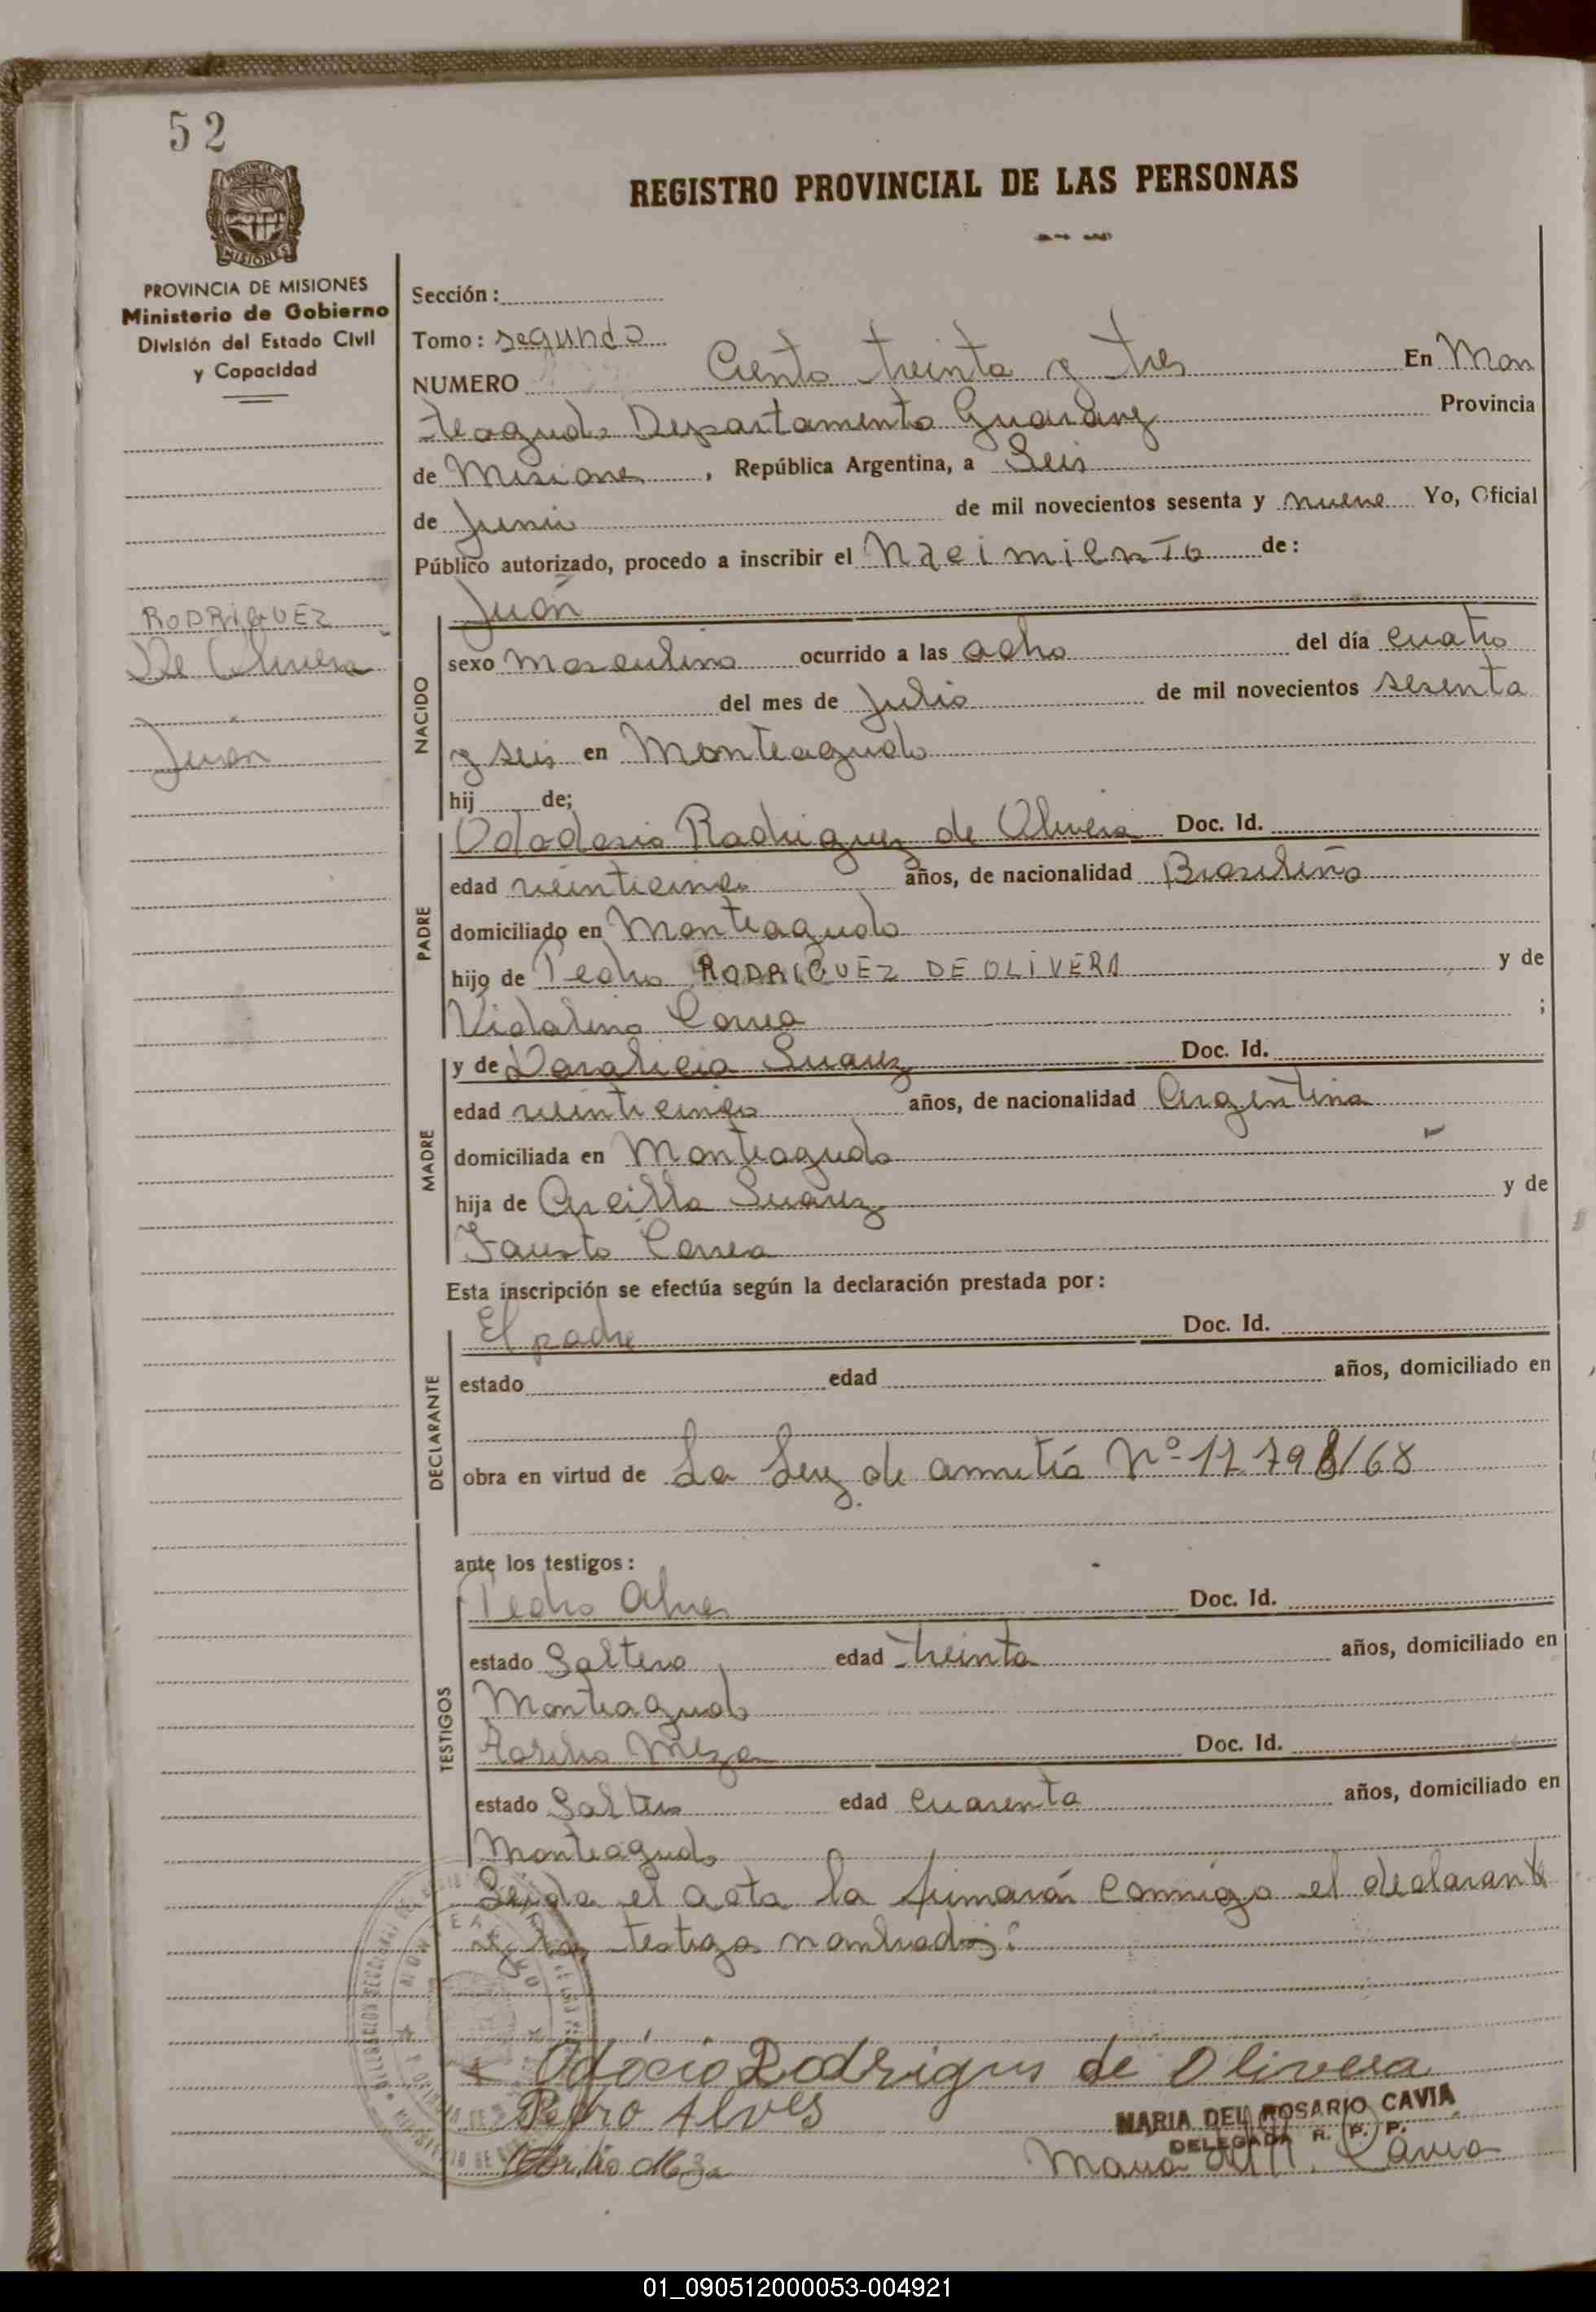 52
REGISTRO PROVINCIAL DE LAS PERSONAS
PROVINCIA DE MISIONES
Ministerio de Gobierno
División del Estado Civil
y Capacidad
RODRIGUEZ
De Olivera
Juan
Sección:
Tomo: segundo
NUMERO Ciento treinta y tres En Mon
teagudo Departamento Guarany Provincia
de Misiones, República Argentina, a Seis
de Junio de mil novecientos sesenta y nueve Yo, Oficial
Público autorizado, procedo a inscribir el Nacimiento de:
NACIDO
Juan
sexo masculino ocurrido a las ocho del día cuatro
del mes de Julio de mil novecientos sesenta
y seis en Monteagudo
hij de;
PADRE
Rodriguez de Olivera Doc. Id.
edad veinticinco años, de nacionalidad Brasileño
domiciliado en Monteagudo
hijo de Pedro RODRIGUEZ DE OLIVERA y de
Vidalina Correa ;
MADRE
y de Suarez Doc. Id.
edad veinticinco años, de nacionalidad Argentina
domiciliada en Monteagudo
hija de Suarez y de
Fausto Correa
Esta inscripción se efectúa según la declaración prestada por:
DECLARANTE
El padre Doc. Id.
estado edad años, domiciliado en
obra en virtud de La Ley de Nº 17798/68
ante los testigos:
TESTIGOS
Pedro Alves Doc. Id.
estado Soltero edad treinta años, domiciliado en
Monteagudo
Meza Doc. Id.
estado Soltero edad cuarenta años, domiciliado en
Monteagudo
Leida el acta la firmarán conmigo el declarante
y los testigos nombrados:
Rodrigus de Olivera
Pedro Alves
Meza
MARIA DEL ROSARIO CAVIA
DELEGADA R. P. P.
Maria del R. Cavia
01_090512000053-004921